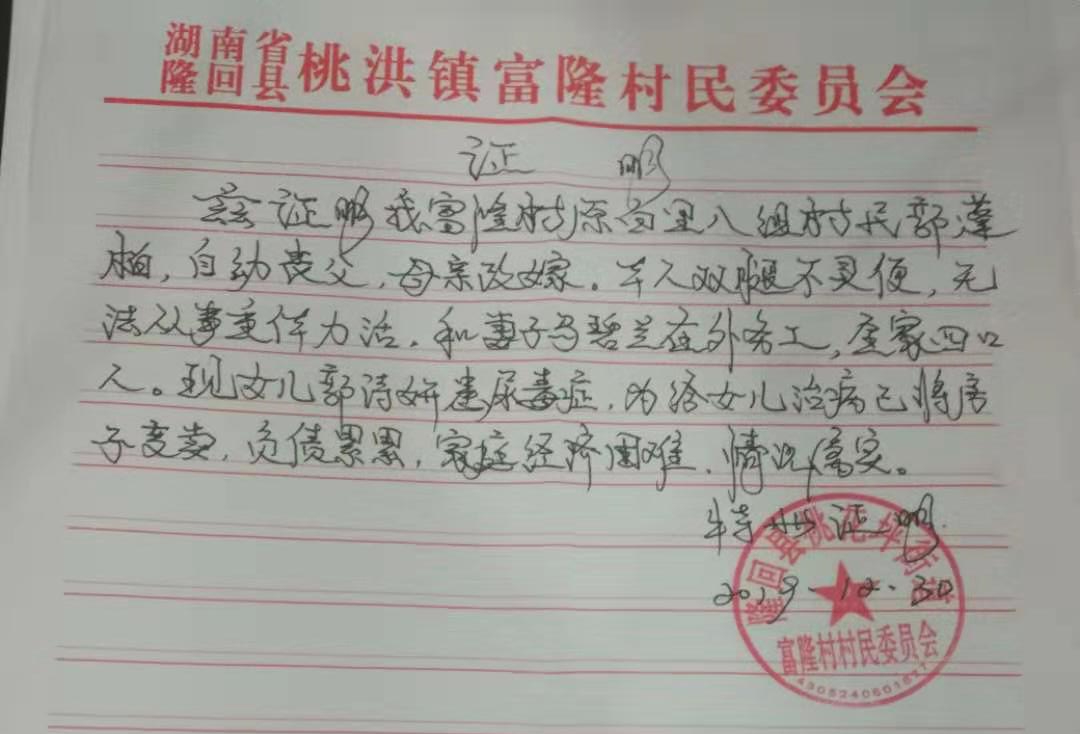 湖南省
隆回县桃洪镇富隆村民委员会
证 明
兹证明我富隆村原向里八组村民部蓬
柏，自幼丧父，母亲改嫁。本人双腿不灵便，无
法从事重体力活，和妻子马碧兰在外务工，全家四口
人。现女儿部诗妍患尿毒症，为给女儿治病已将房
子变卖，负债累累，家庭经济困难，情况属实。
特此证明
2019-12-30
隆回县桃花坪街道
富隆村村民委员会